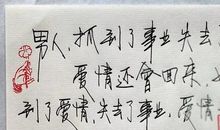 男人，抓到了事业失去了
爱情还會回来，
到了爱情，失去了事业，爱情